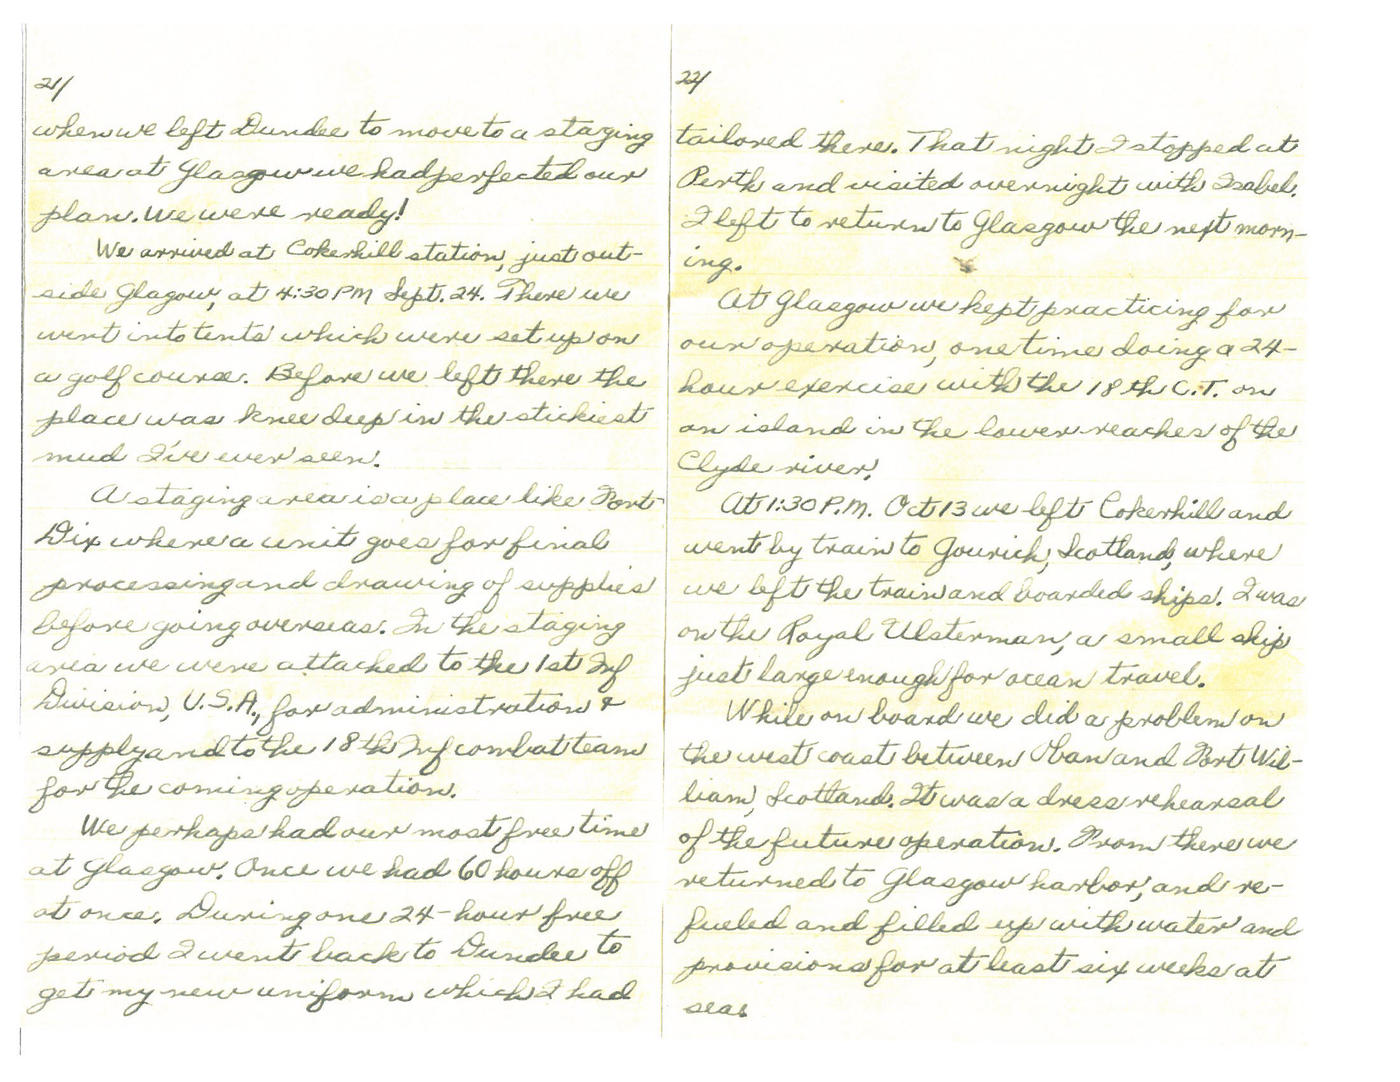 21/
when we left Dundee to move to a staging
area at Glasgow we had perfected our
plan. We were ready!
We arrived at Cokerhill station, just out-
side Glagow, at 4:30 PM Sept. 24. There we
went into tents which were set up on
a golf course. Before we left there the
place was knee deep in the stickiest
mud I've ever seen.
A staging area is a place like Fort
Dix where a unit goes for final
processing and drawing of supplies
before going overseas. In the staging
area we were attached to the 1st Inf
Division, U.S.A., for administration &
supply and to the 18th Inf combat team
for the coming operation.
We perhaps had our most free time
at Glasgow. Once we had 60 hours off
at once. During one 24-hour free
period I went back to Dundee to
get my new uniform which I had
22/
tailored there. That night I stopped at
Perth and visited overnight with Isabel.
I left to return to Glasgow the next morn-
ing.
At Glasgow we kept practicing for
our operation, one time doing a 24-
hour exercise with the 18th C.T. on
an island in the lower reaches of the
Clyde river.
At 1:30 P.M. Oct 13 we left Cokerhill and
went by train to Gourich, Scotland, where
we left the train and boarded ships. I was
on the Royal Ulsterman, a small ship
just large enough for ocean travel.
While on board we did a problem on
the west coast between Oban and Fort Wil-
liam, Scotland. It was a dress rehearsal
of the future operation. From there we
returned to Glasgow harbor, and re-
fueled and filled up with water and
provisions for at least six weeks at
sea.